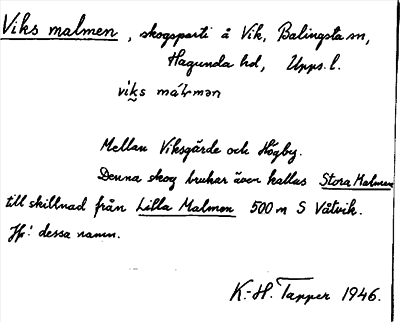 Viks malmen, skogsparti å Vik, Balingsta sn,
Hagunda hd, Upps. l.
vi̬ks má̀lmǝn
Mellan Viksgärde och Högby.
Denna skog brukar även kallas Stora Malmen
till skillnad från Lilla Malmen 500 m S Våtvik.
Jfr: dessa namn.
K.-H. Tapper 1946.